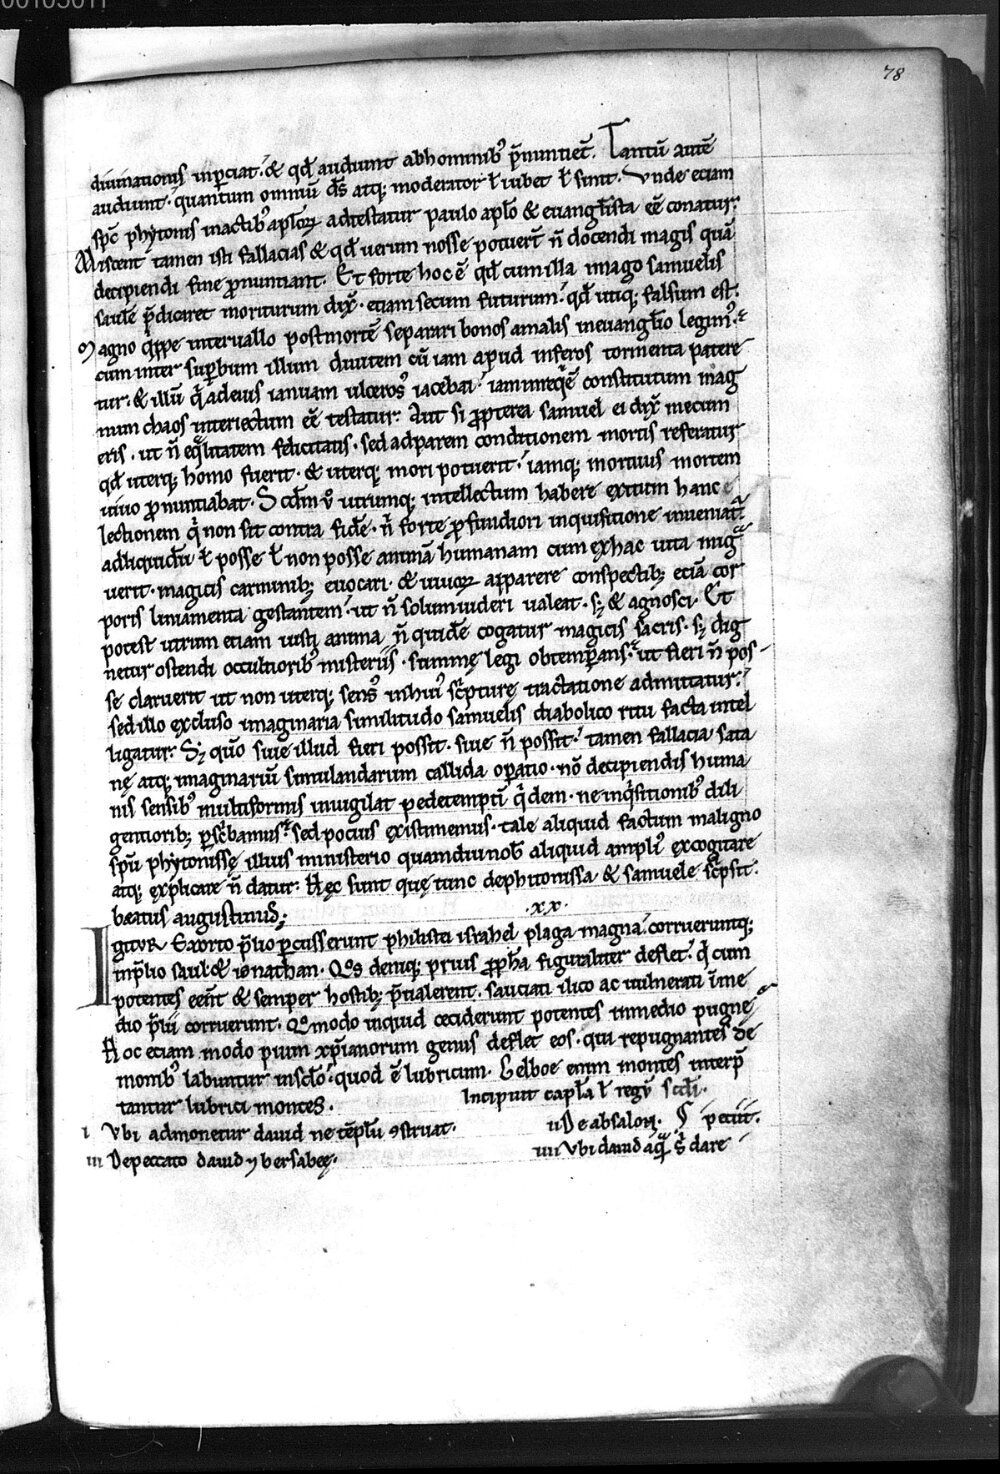 78
diuinationis inꝑciat᛫ & qd̄ audiunt abhominibꝰ p̄nuntiet̄. Tantū autē
audiunt᛫ quantum omniū ds̄ atq; moderator ł iubet ł sinit. Vnde etiam
spc̄ phytonis inactibꝰ apłoꝝ adtestatur paulo apło & euangłista eē conatur᛫
Miscent tamen isti fallacias & qd̄ uerum nosse potuerī n̄ docendi magis quā
decipiendi fine ꝓnuntiant. Et forte hoc ē qd̄ cum illa imago samuelis
saulē p̄dicaret moriturum dix̄᛫ etiam secum futurum᛫ qd̄ utiq; falsum est᛫
Magno q̄ppe interuallo postmortē separari bonos amalis ineuangłio legimꝰ᛫
cum inter suꝑbum illum diuitem cū iam apud inferos tormenta patere
tur᛫ & illū q̄ adeius ianuam ulcerosꝰ iacebat᛫ iaminreq̄ē constitutum mag
num chaos interiectum eē testatur᛫ Aut si ꝓpterea samuel ei dix̄ mecum
eris᛫ ut n̄ eq̄litatem felicitatis᛫ sed adparem conditionem mortis referatur
qd̄ uterq; homo fuerit᛫ & uterq; mori potuerit᛫ iamq; mortuus mortem
uiuo ꝓnuntiabat᛫ Scdm̄ ꝟ utrumq; intellectum habere exitum hanc
lectionem q̄ non sit contra fidē᛫ n̄ forte ꝓfundiori inquisitione inueniat᛫
adliquidū ł posse ł non posse animā humanam cum exhac uita mig
uerit᛫ magicis carminib; euocari᛫ & uiuoꝝ apparere conspectib; etiā cor
poris liniamenta gestantem᛫ ut n̄ solum uideri ualeat᛫ s; & agnosci᛫ Et
potest utrum etiam iusti anima n̄ quidē cogatur magicis sacris᛫ s; dig
netur ostendi occultioribꝰ misteriis᛫ summę legi obtemꝑans᛫ ut fieri n̄ pos-
se claruerit ut non uterq; sensꝰ inhuiꝰ sc̄pturę tractatione admittatur᛫
sed illo excluso imaginaria similitudo samuelis diabolico ritu facta intel
ligatur᛫ S; quō siue illud fieri possit᛫ siue n̄ possit᛫ tamen fallacia sata
nę atq; imaginariū simulandarum callida oꝑatio᛫ nō decipiendis huma
nis sensibꝰ multiformis inuigilat pedetemptī q̄dem᛫ ne inq̄sitionibꝰ dili
gentiorib; ꝑscbamus᛫ sed pocius existimemus᛫ tale aliquid factum maligno
spū phytonissę illius ministerio quamdiu nob̄ aliquid ampliꝰ excogitare
atq; explicare n̄ datur᛫ Hęc sunt quę tunc dephitonissa & samuele sc̄psit᛫
beatus augustinus;
᛫xx᛫
Igitur Exorto p̄lio ꝑcusserunt philistei israhel plaga magna᛫ corrueruntq;
inp̄lio saul & ionathan᛫ Qos deniq; prius ꝓpħa figuraliter deflet᛫ q̄ cum
potentes eēnt & semper hostib; p̄ualerent᛫ sauciati ilico ac uulnerati īme
dio p̄lii corruerunt᛫ Qomodo inquid ceciderunt potentes inmedio pugnę
Hoc etiam modo pium xp̄ianorum genus deflet eos᛫ qui repugnantes dę
monibꝰ labuntur insclō᛫ quod ē lubricum᛫ Gelboe enim montes interp̄
tantur lubrici montes.
Incipiunt capła ł regū scdi᛫
i Vbi admonetur dauid ne tēplū ꝯstruat᛫
ii De absalon᛫ petiit᛫
iii Depeccato dauid ⁊ bersabeę᛫
iiii Vbi dauid aq̄ s̄ dare